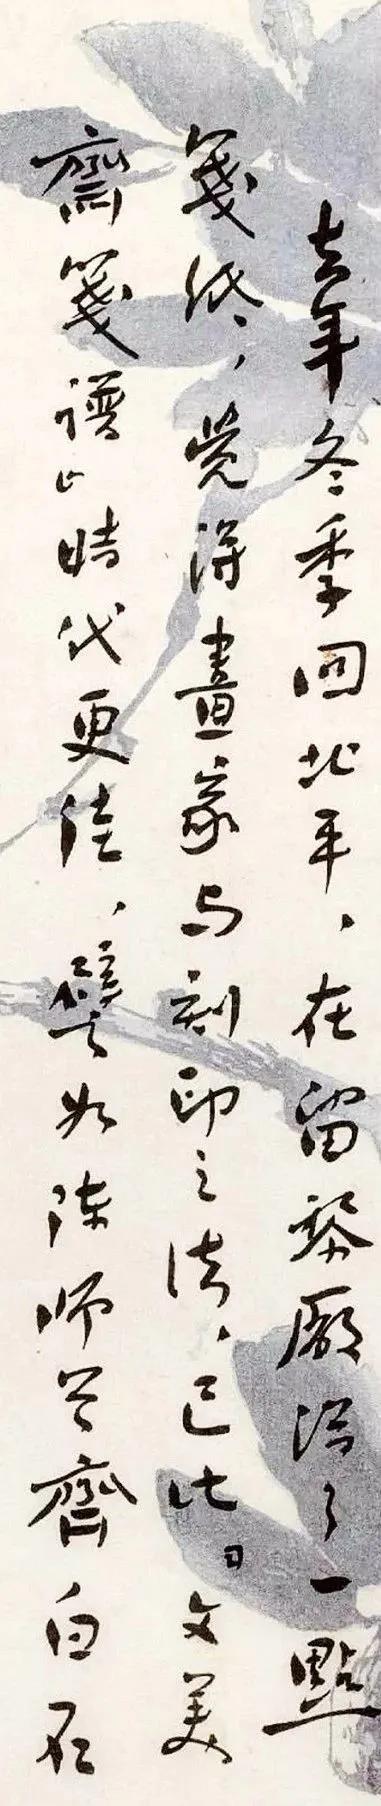 去年冬季回北平，在留黎廠得了一點
箋紙，覺得畫家与刻印之法，已比「文美
齋箋譜」時代更佳，譬如陳师曾齊白石